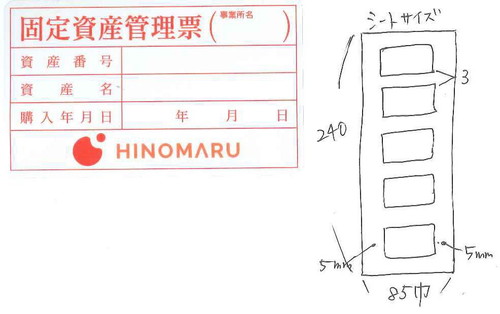 固定資産管理票(事業所名)
資産番号
資産名
購入年月日 年 月 日
HINOMARU
シートサイズ
3
240
5mm
5mm
85巾